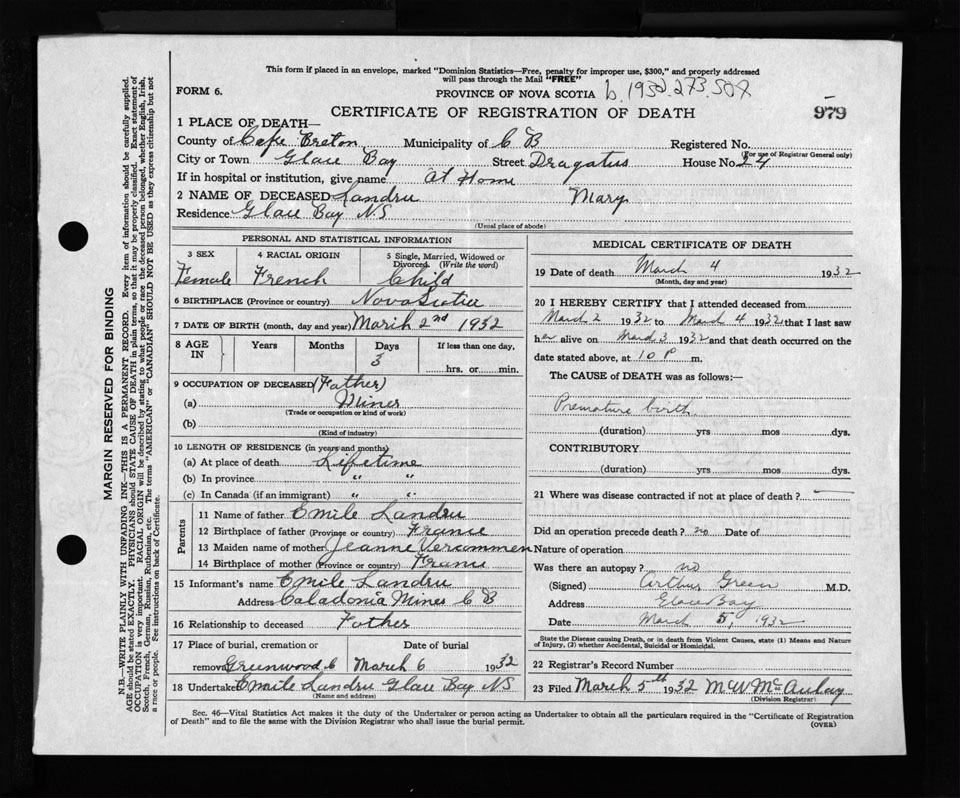 This form if placed in an envelope, marked "Dominion Statistics—Free, penalty for improper use, $300," and properly addressed
will pass through the Mail "FREE"
FORM 6.
PROVINCE OF NOVA SCOTIA b. 1932. 273.
979
CERTIFICATE OF REGISTRATION OF DEATH
1 PLACE OF DEATH—
County of Cape Breton Municipality of C B Registered No.
(For use of Registrar General only)
City or Town Glace Bay Street Dragatus House No. 24
If in hospital or institution, give name at Home
2 NAME OF DECEASED Landru Mary
Residence Glace Bay N.S
(Usual place of abode)
PERSONAL AND STATISTICAL INFORMATION
3 SEX
Female
4 RACIAL ORIGIN
French
5 Single, Married, Widowed or
Divorced. (Write the word)
Child
6 BIRTHPLACE (Province or country) Nova Scotia
7 DATE OF BIRTH (month, day and year) March 2nd 1932
8 AGE IN Years Months Days If less than one day,
3 hrs. or min.
9 OCCUPATION OF DECEASED (Father)
(a) Miner
(Trade or occupation or kind of work)
(b)
(Kind of industry)
10 LENGTH OF RESIDENCE (in years and months)
(a) At place of death Lifetime
(b) In province " "
(c) In Canada (if an immigrant) " "
Parents
11 Name of father Emile Landru
12 Birthplace of father (Province or country) France
13 Maiden name of mother Jeanne Vercommen
14 Birthplace of mother (Province or country) France
15 Informant's name Emile Landru
Address Caladonia Mines C B
16 Relationship to deceased Father
17 Place of burial, cremation or Date of burial
removal Greenwood C March 6 1932
18 Undertaker Emile Landru Glace Bay NS
(Name and address)
MEDICAL CERTIFICATE OF DEATH
19 Date of death March 4 1932
(Month, day and year)
20 I HEREBY CERTIFY that I attended deceased from
March 2 1932 to March 4 1932 that I last saw
her alive on March 3 1932 and that death occurred on the
date stated above, at 10 P m.
The CAUSE of DEATH was as follows:—
Premature birth
(duration) yrs mos dys.
CONTRIBUTORY
(duration) yrs mos dys.
21 Where was disease contracted if not at place of death? —
Did an operation precede death? no Date of
Nature of operation
Was there an autopsy? no
(Signed) Arthur Green M.D.
Address Glace Bay
Date March 5, 1932
State the Disease causing Death, or in death from Violent Causes, state (1) Means and Nature
of Injury, (2) whether Accidental, Suicidal or Homicidal.
22 Registrar's Record Number
23 Filed March 5th 1932 M W McAulay
(Division Registrar)
Sec. 46—Vital Statistics Act makes it the duty of the Undertaker or person acting as Undertaker to obtain all the particulars required in the "Certificate of Registration
of Death" and to file the same with the Division Registrar who shall issue the burial permit.
(OVER)
MARGIN RESERVED FOR BINDING
N.B.—WRITE PLAINLY WITH UNFADING INK—THIS IS A PERMANENT RECORD. Every item of information should be carefully supplied.
AGE should be stated EXACTLY. PHYSICIANS should STATE CAUSE OF DEATH in plain terms, so that it may be properly classified. Exact statement of
OCCUPATION is very important. RACIAL ORIGIN will be described by stating to what people or race the deceased person belonged, whether English, Irish,
Scotch, French, German, Russian, Ruthenian, etc. The terms "AMERICAN" or "CANADIAN" SHOULD NOT BE USED as they express citizenship but not
a race or people. See instructions on back of Certificate.